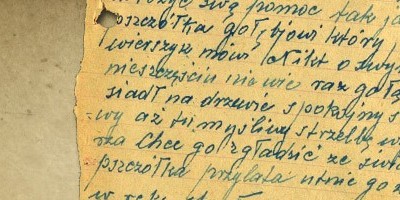 swą pomoc tak ja
pszczółka gołębiowi który
wierszyk mówi Nikt o swym
nieszczęściu nie wie raz goł
siadł na drzewie spokojny s
wy aż tu myśliwy strzelbę w
rza chce go zgładzić ze świa
pszczółka przylata utnie go z
w rękę